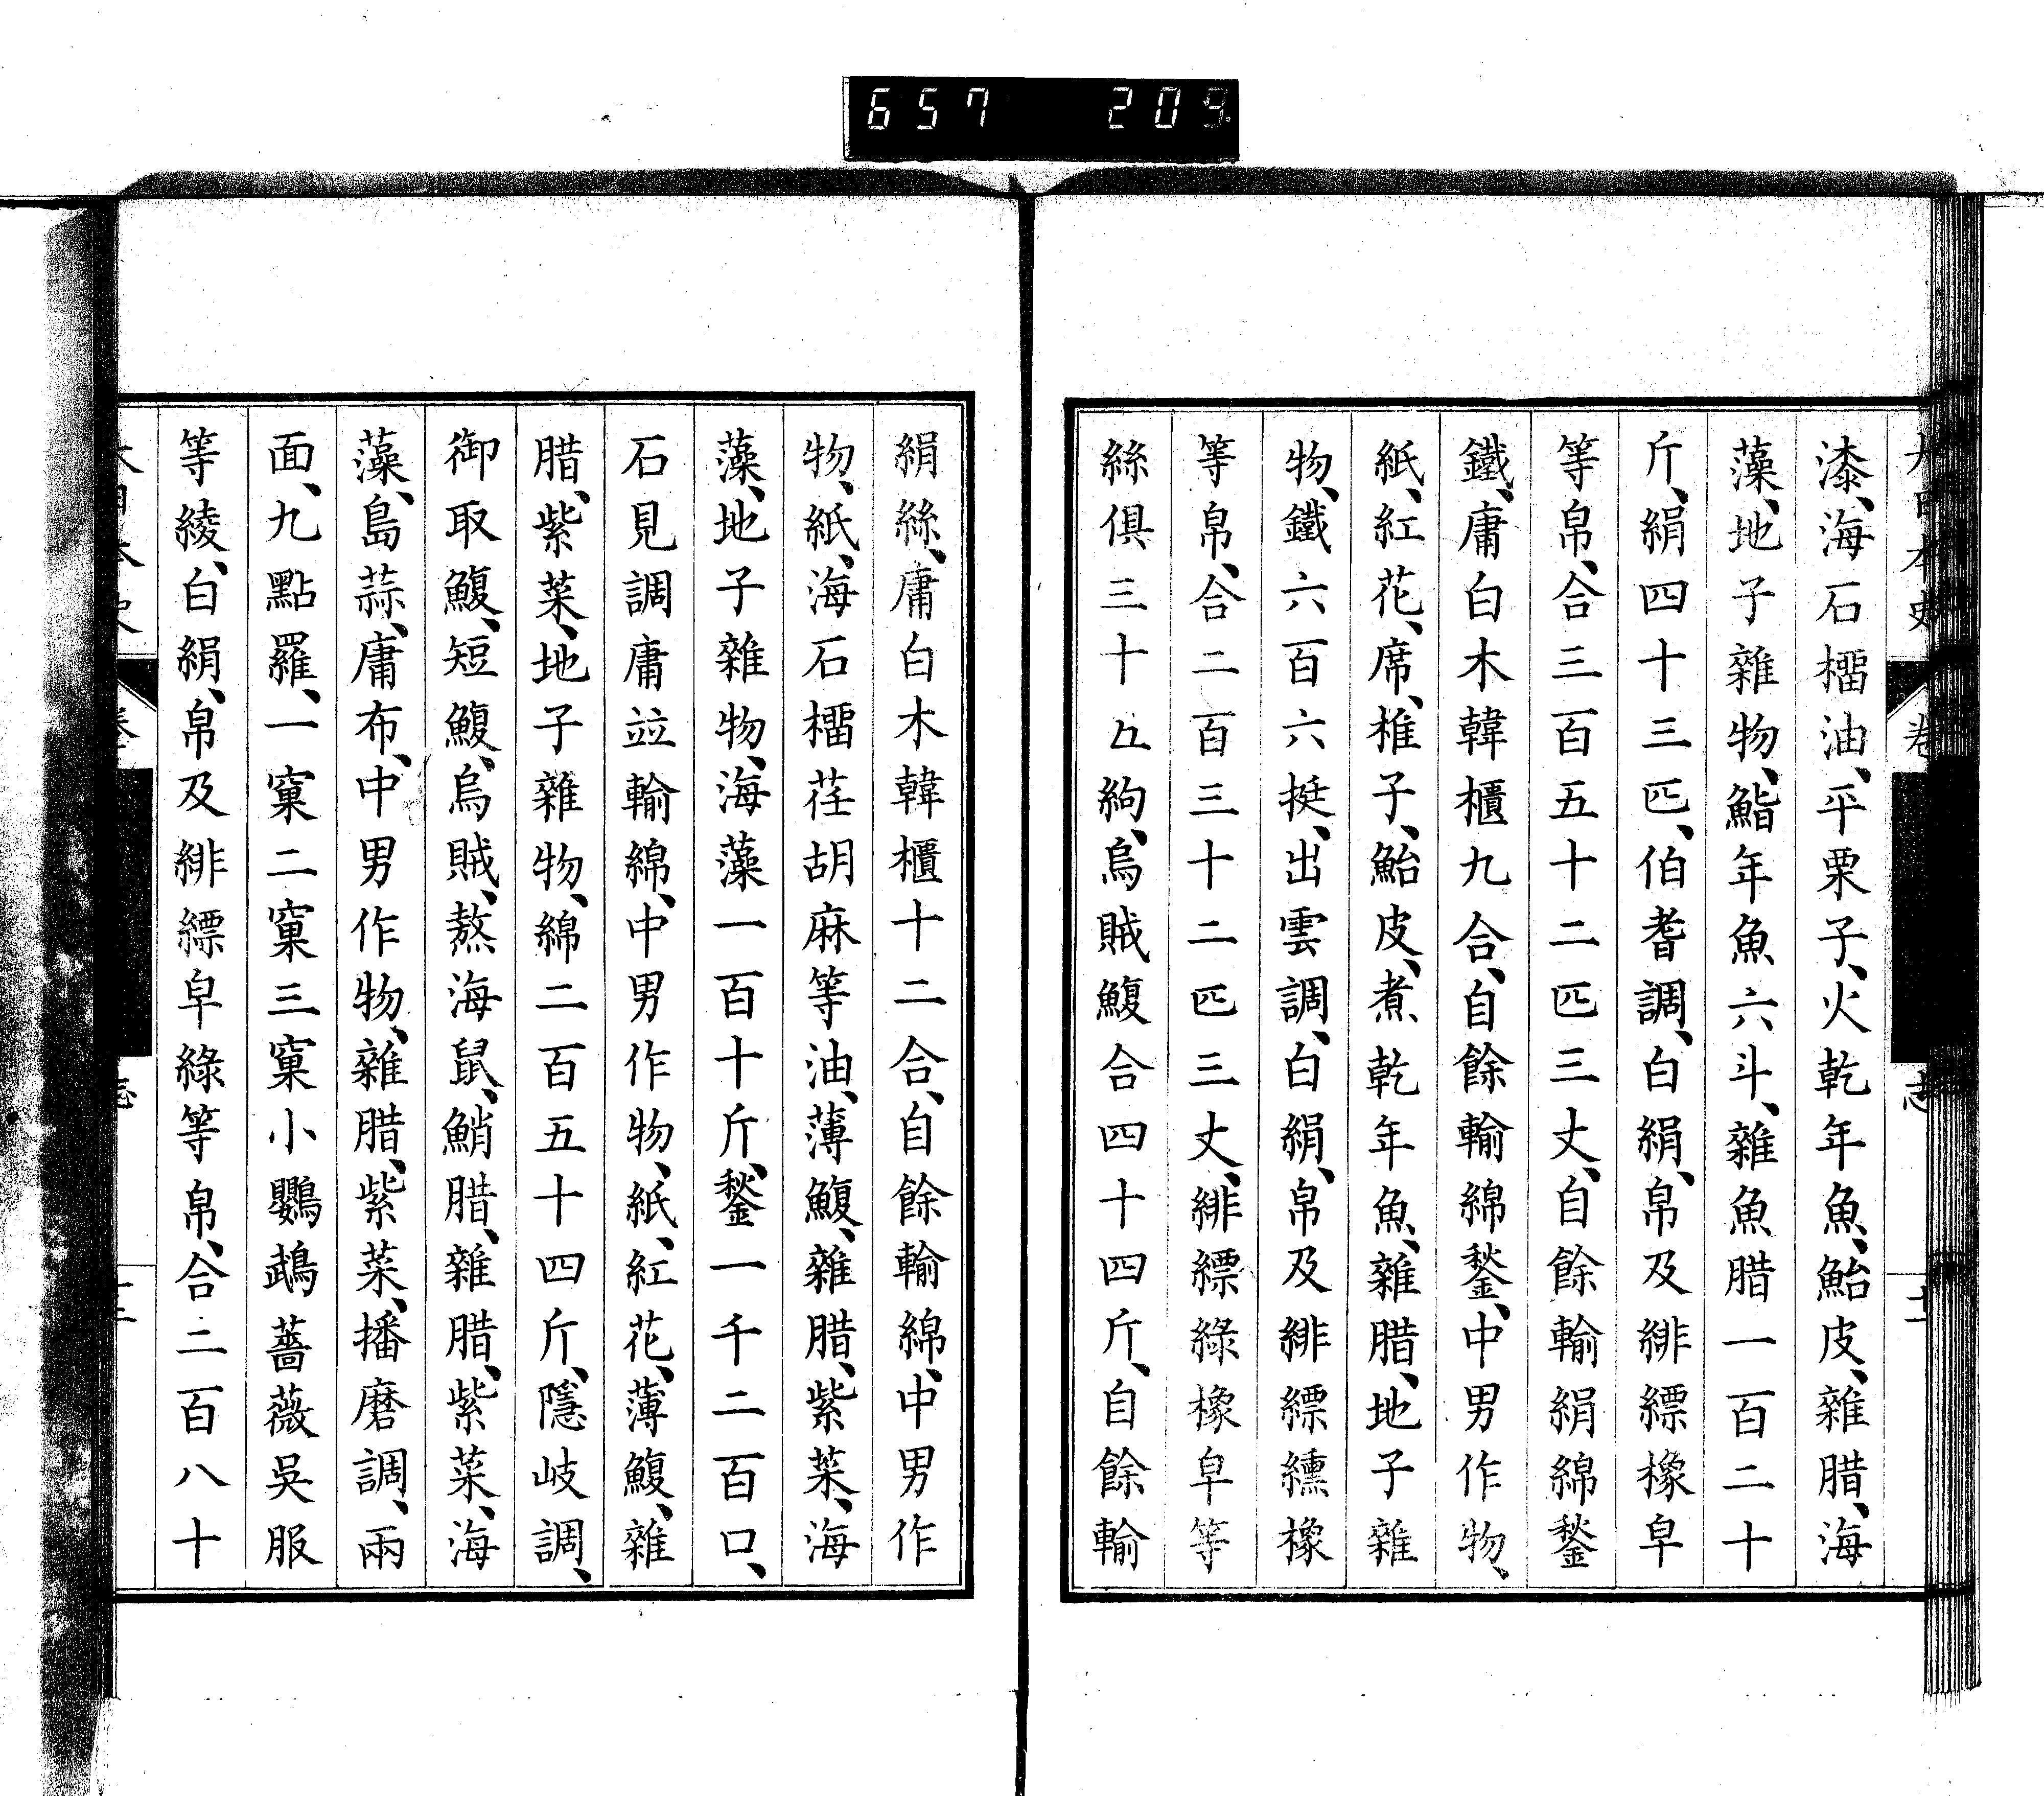 657 209
大日本史 卷 志
漆、海石榴油、平栗子、火乾年魚、鮐皮、雜腊、海
藻、地子雜物、鮨年魚六斗、雜魚腊一百二十
斤、絹四十三匹、伯耆調、白絹、帛及緋縹橡皁
等帛、合三百五十二匹三丈、自餘輸絹綿鍫
鐵、庸白木韓櫃九合、自餘輸綿鍫、中男作物、
紙、紅花、席、椎子、鮐皮、煮乾年魚、雜腊、地子雜
物、鐵六百六挺、出雲調、白絹、帛及緋縹纁橡
等帛、合二百三十二匹三丈、緋縹綠橡皁等
絲俱三十五絇、烏賊鰒合四十四斤、自餘輸
絹絲、庸白木韓櫃十二合、自餘輸綿、中男作
物、紙、海石榴荏胡麻等油、薄鰒、雜腊、紫菜、海
藻、地子雜物、海藻一百十斤、鍫一千二百口、
石見調庸竝輸綿、中男作物、紙、紅花、薄鰒、雜
腊、紫菜、地子雜物、綿二百五十四斤、隱岐調、
御取鰒、短鰒、烏賊、熬海鼠、鮹腊、雜腊、紫菜、海
藻、島蒜、庸布、中男作物、雜腊、紫菜、播磨調、兩
面、九點羅、一窠二窠三窠小鸚鵡薔薇吳服
等綾、白絹、帛及緋縹皁綠等帛、合二百八十
大日本史 卷 志